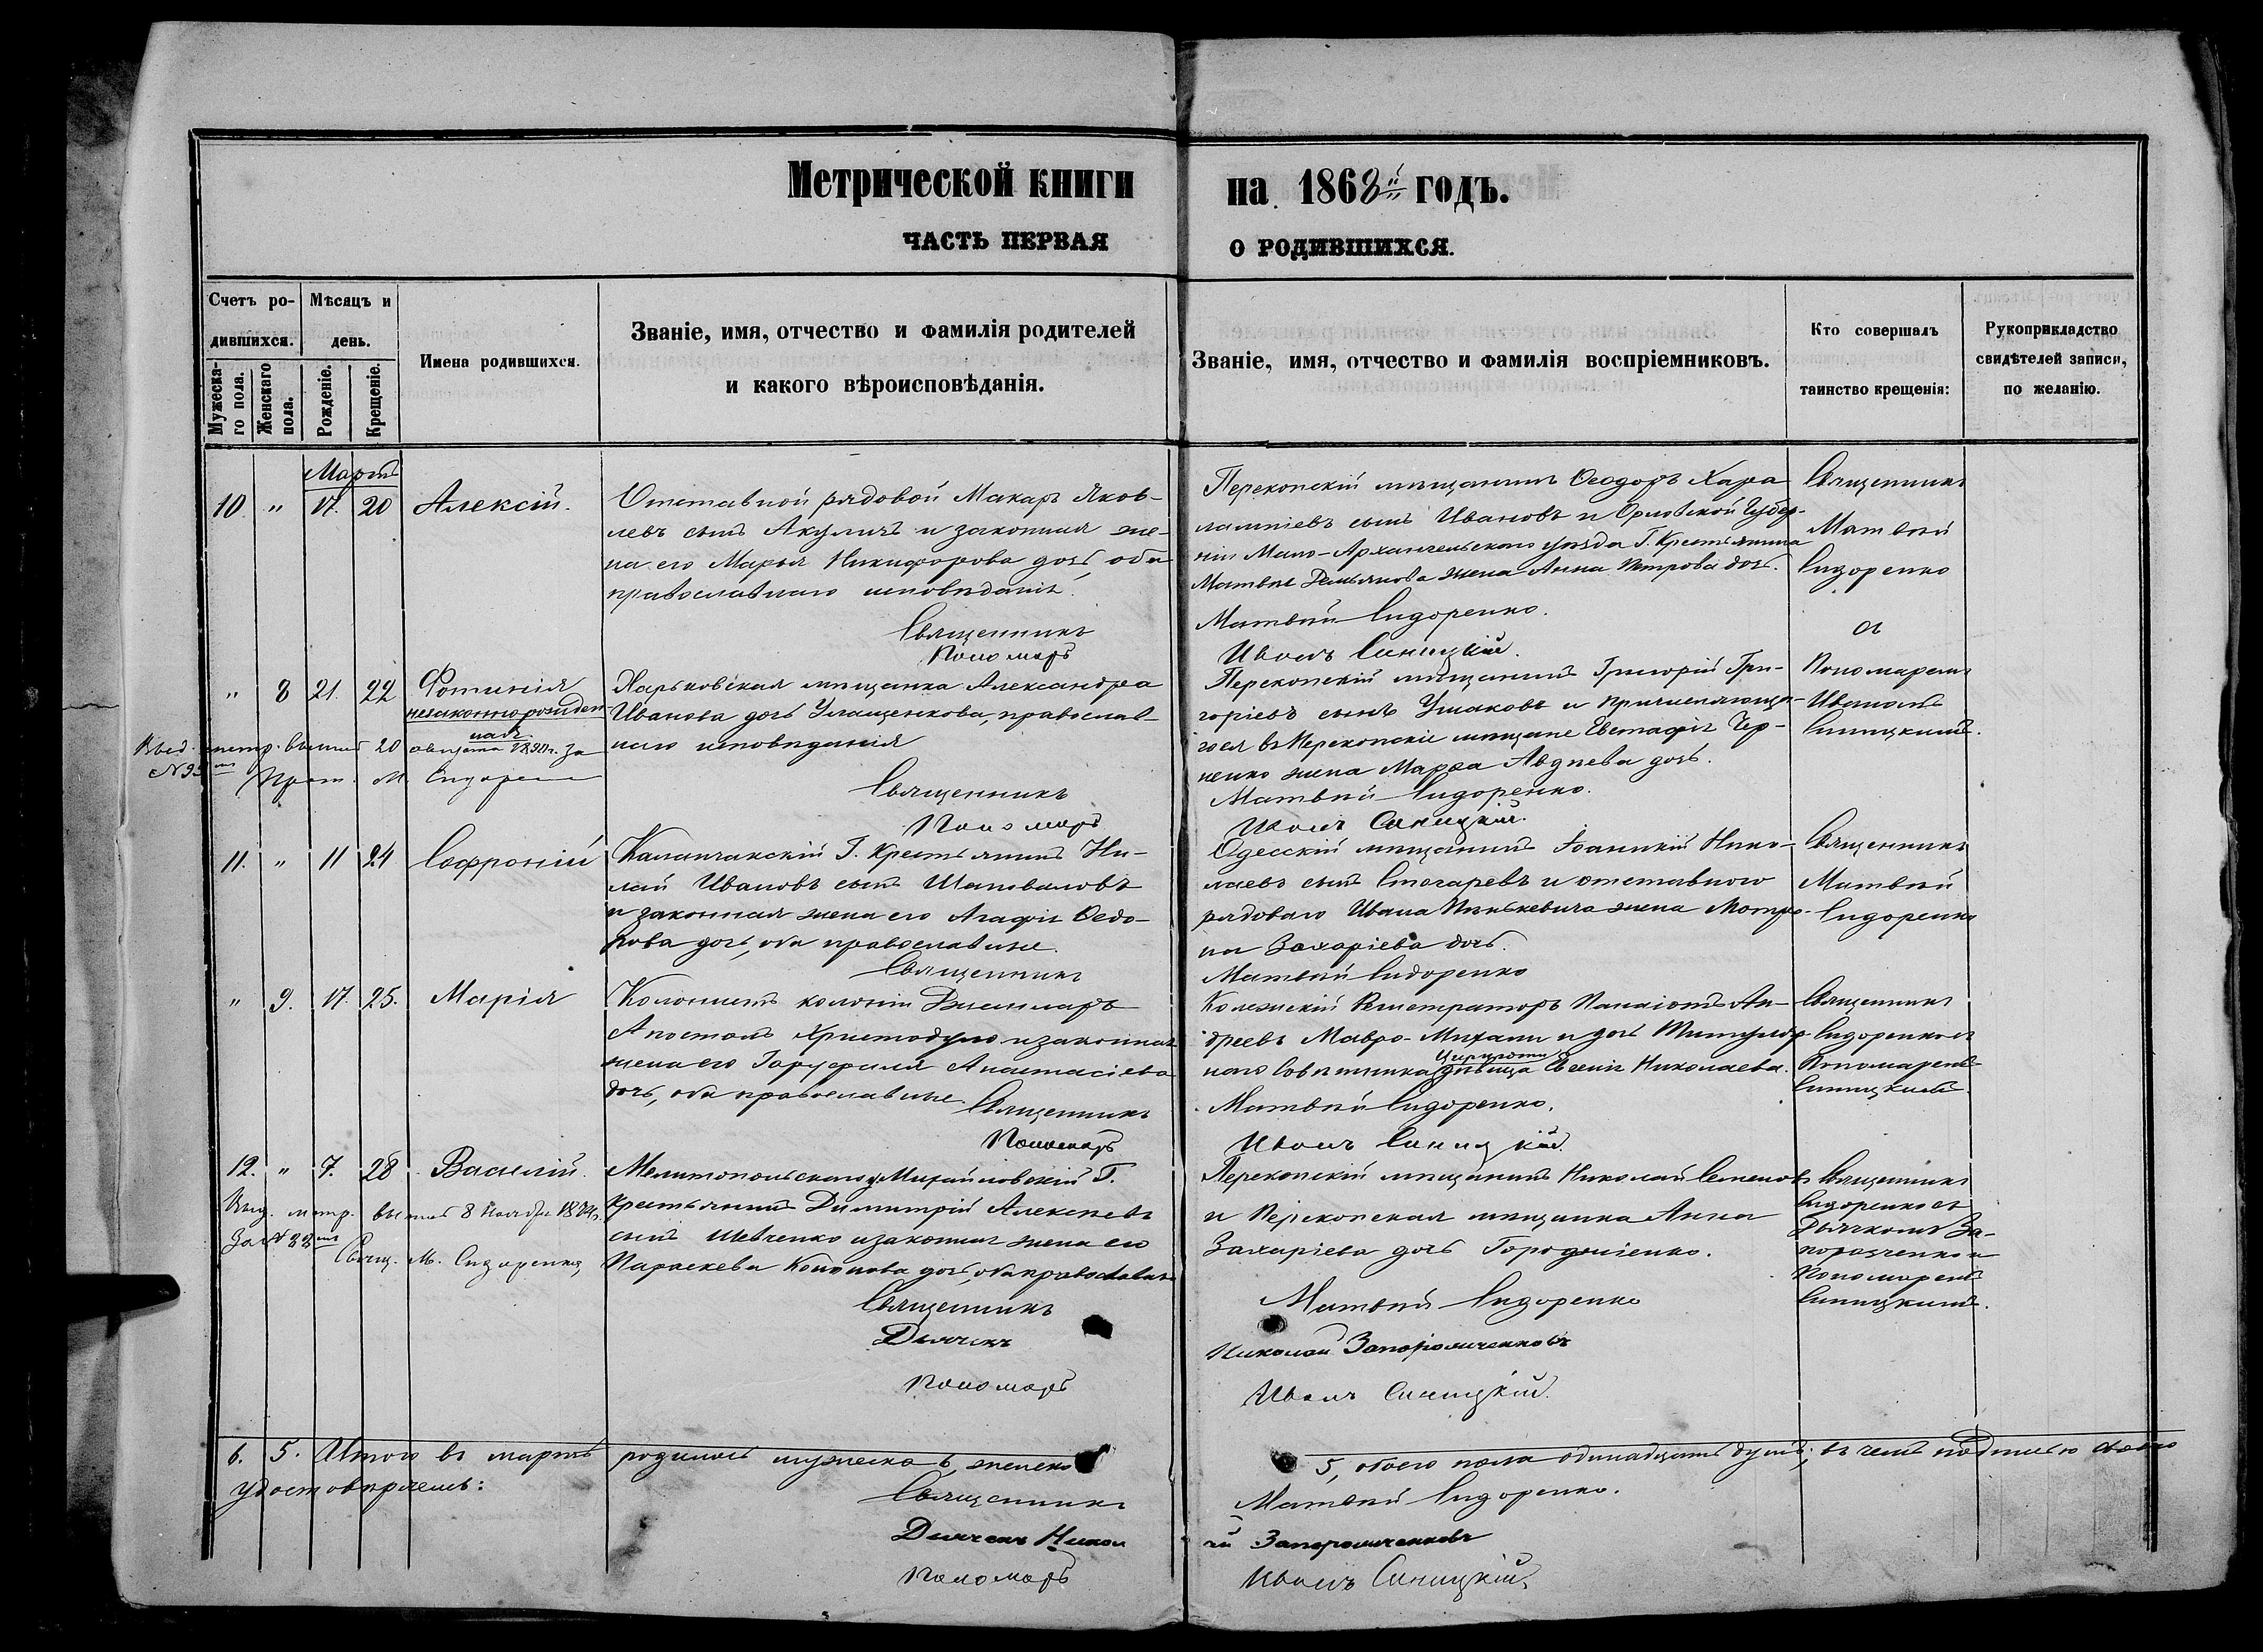 Метрической книги на 1868й годъ.
ЧАСТЬ ПЕРВАЯ О РОДИВШИХСЯ.
Счетъ родившихся.
Мужескаго пола.
Женскаго пола.
Мѣсяцъ и день.
Рожденіе.
Крещеніе.
Имена родившихся.
Званіе, имя, отчество и фамилія родителей
и какого вѣроисповѣданія.
Званіе, имя, отчество и фамилія воспріемниковъ.
Кто совершалъ
таинство крещенія:
Рукоприкладство
свидѣтелей записи,
по желанію.
Мартъ
10 " 17. 20 Алексій.
Отставной рядовой Макаръ Яков-
левъ сынъ Акуличъ и законная же-
на его Марья Никифорова дочь, оба
православнаго исповѣданія.
Священникъ
Пономарь
Перекопскій мѣщанинъ Ѳеодоръ Хара
лампіевъ сынъ Ивановъ и Орловской Губер-
ніи Мало-Архангельскаго уѣзда Г. Крестьянина
Матвѣя Демьянова жена Анна Петрова дочь.
Матвѣй Сидоренко.
Иванъ Синицкій.
Священникъ
Матвѣй
Сидоренко
съ
Пономаремъ
Иваномъ
Синицкимъ.
" 8 21. 22 Фотинія
незаконнорожден-
ная
Харьковская мѣщанка Александра
Иванова дочь Улащенкова, православ-
наго исповѣданія
Священникъ
Пономарь
Выд. метр. выпись 20 августа 1890г. за
N 95
Прот. М. Сидорен
Перекопскій мѣщанинъ Григорій Гри-
горіевъ сынъ Ушаковъ и причисляюща-
гося въ Перекопскіе мѣщане Евстафія Чер-
ненко жена Марѳа Авдѣева дочь.
Матвѣй Сидоренко.
Иванъ Синицкій.
11. " 11 24 Софроній
Каланчакскій Г. Крестьянинъ Ни-
лай Ивановъ сынъ Шаповаловъ
и законная жена его Агафія Ѳедо-
рова дочь, оба православные.
Священникъ
Одесскій мѣщанинъ Іоанникій Нико-
лаевъ сынъ Стогаревъ и отставного
рядоваго Ивана жена Матро-
на Захаріева дочь.
Матвѣй Сидоренко
Священникъ
Матвѣй
Сидоренко
" 9. 17. 25. Марія
Колонистъ колоніи
Апостолъ Христодуло и законная
жена его Гаруфалія Анастасіева
дочь, оба православные
Священникъ
Пономарь
Колежскій Регистраторъ Панаіотъ Ан-
дреевъ Мавро-Михали и дочь Титуляр-
наго Совѣтника дѣвица Евгенія Николаева.
Матвѣй Сидоренко.
Иванъ Синицкій.
Священникъ
Сидоренко съ
Пономаремъ
Синицкимъ
12. " 7. 28 Василій.
Мелитопольскаго у. Михайловскій Г.
Крестьянинъ Димитрій Алексѣевъ
сынъ Шевченко и законная жена его
Параскева Кононова дочь, оба православные
Священникъ
Дьячекъ
Пономарь
Выд. метр. выпись 8 Ноября
За № 82
Свящ. М. Сидоренко
Перекопскій мѣщанинъ Николай Семеновъ
и Перекопская мѣщанка Анна
Захаріева дочь Городніенко.
Матвѣй Сидоренко
Николай Запорожченковъ
Иванъ Синицкій.
Священникъ
Сидоренко съ
Дьячкомъ За-
порожченко и
Пономаремъ
Синицкимъ.
6. 5. Итого въ мартѣ родилось мужеска 6, женска 5, обоего пола одинадцать душъ; въ чемъ подписью своею
удостовѣряемъ:
Священникъ Матвѣй Сидоренко.
Дьячекъ Николай Запорожченковъ
Пономарь Иванъ Синицкій.